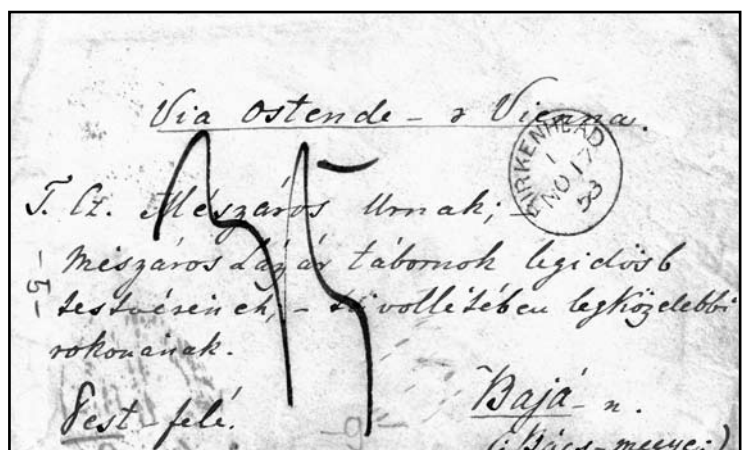 Via Ostende - & Vienna.
BIRKENHEAD
1
NO 17
53
T. Cz. Mészáros Urnak; -
Mészáros Lázár tábornok legidősb
testvérének, - távollétében legközelebbi
rokonának.
Pest-felé.
Bajá-n.
(:Bács-megye:)
- 5 -